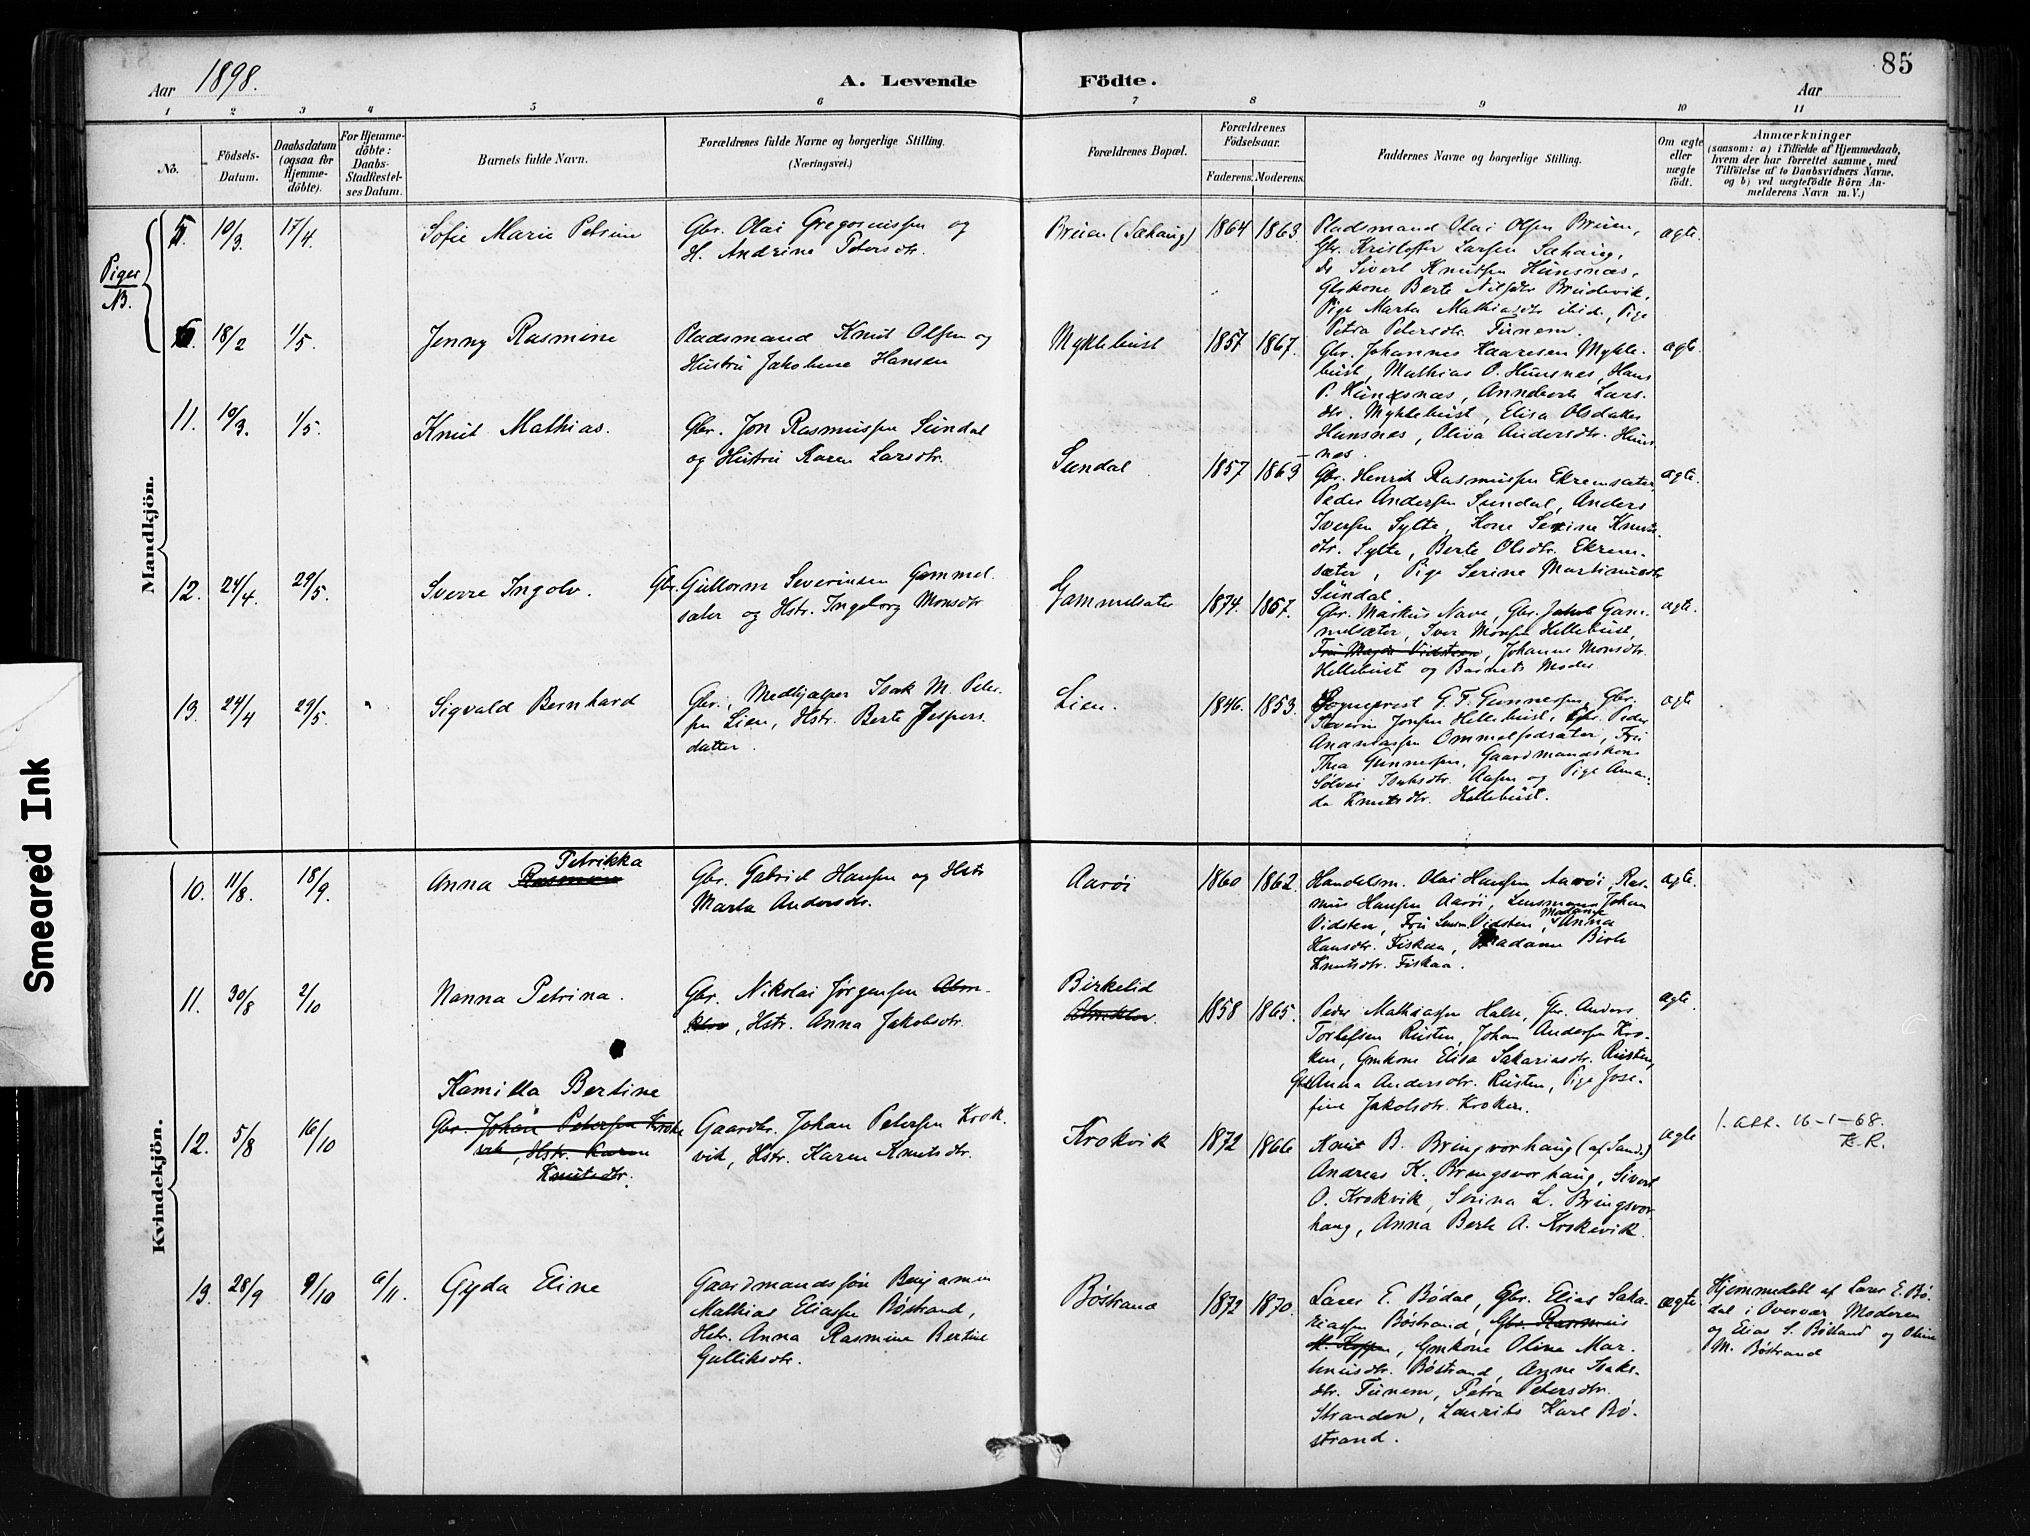 Aar 1898.
A. Levende Födte.
85
Aar
1 2 3 4 5 6 7 8 9 10 11
No.
Födsels-Datum.
Daabsdatum (ogsaa for Hjemme-döbte).
For Hjemme-döbte: Daabs-Stadfæstel-ses Datum.
Barnets fulde Navn.
Forældrenes fulde Navne og borgerlige Stilling.
(Næringsvei.)
Forældrenes Bopæl.
Forældrenes Födselsaar.
Faderens. Moderens.
Faddernes Navne og borgerlige Stilling.
Om ægte eller uægte födt.
Anmærkninger
(saasom: a) i Tilfælde af Hjemmedaab,
hvem der har forrettet samme, med
Tilföielse af to Daabsvidners Navne,
og b) ved uægtefödte Börn An-
melderens Navn m. V.)
Piger
NB.
5. 10/3. 17/4. Sofie Marie Petrine
Gbr. Olai Gregoriussen og
H. Andrine Petersdtr.
Bruen (Sæhaug) 1864 1863.
Pladsmand Olai Olsen Bruen,
Gbr. Kristoffer Larsen Sæhaug,
do Sivert Knutsen Hunsnæs,
Gbrkone Berte Nilsdtr Brudevik,
Pige Marta Mathiasdtr ibid., Pige
Petra Petersdtr. Tunem.
ægte.
6. 18/2 1/5. Jenny Rasmine
Pladsmand Knut Olsen og
Hustru Jakobine Hansen
Myklebust 1857 1867.
Gbr. Johannes Kaaresen Mykle-
bust, Mathias O. Hunsnes, Hans
P. Hunsnæs, Anneberte Lars-
dtr. Myklebust, Elisa Olsdatter
Hunsnes, Oliva Andersdtr. Huns-
nes.
ægte.
Mandkjön.
11. 10/3. 1/5. Knut Mathias.
Gbr. Jon Rasmussen Sundal
og Hustru Karen Larsdtr.
Sundal 1857 1863
Gbr. Henrik Rasmussen Ekremsæter,
Peder Andersen Sundal, Anders
Iversen Sylte, Kone Serine Knuts-
dtr. Sylte, Berte Olsdtr. Ekrem-
sæter, Pige Serine Martinusdtr
Sundal.
ægte.
12. 24/4. 29/5. Sverre Ingolv.
Gbr. Guttorm Severinsen Gammel-
sæter og Hstr. Ingeborg Monsdtr
Gammelsæter 1874. 1867.
Gbr. Markus Nave, Gbr. Jakob Gam-
melsæter, Iver Monsen Hellebust,
Fru Magda Vidsteen, Johanne Monsdtr.
Hellebust og Barnets Moder.
ægte.
13. 24/4 29/5. Sigvald Bernhard
Gbr., Medhjælper Isak M. Peter-
sen Lien, Hstr. Berte Jespers-
datter.
Lien. 1846. 1853.
Sogneprest G. F. Gunnersen, Gbr.
Severin Jonsen Hellebust, Gbr. Peder
Ananiassen Ommelfodsæter, Fru
Thea Gunnersen, Gaardmandskone
Sølvei Isaksdtr. Aasen og Pige Aman-
da Knutsdtr. Hellebust.
ægte
Kvindekjön.
10. 11/8. 18/9. Anna Petrikka
Gbr. Gabriel Hansen og Hstr
Marta Andersdtr.
Aarøi 1860 1862.
Handelsm. Olai Hansen Aarøi, Ras-
mus Hansen Aarøi, Lensmann Johan
Vidsten, Fru Lensm. Vidsten, Madame Anna
Hansdtr. Fiskaa, Madame Birte
Knutsdtr. Fiskaa.
ægte.
11. 30/8 2/10 Nanna Petrina.
Gbr. Nikolai Jørgensen
, Hstr. Anna Jakobsdtr.
Birkelid
1858 1865.
Peder Mathiassen Halse, Gbr. Anders
Torlefsen Rusten, Johan Andersen Kro-
ken, Gmkone Elisa Sakariasdtr. Rusten,
Anna Andersdtr. Rusten, Pige Jose-
fine Jakobsdtr. Kroken.
ægte.
12. 5/8 16/10 Kamilla Bertine
Gbr. Johan Petersen Krok-
vik, Hstr. Karen
Knutsdtr.
Gaardbr. Johan Petersen Krok-
vik, Hstr. Karen Knutsdtr.
Krokvik 1872 1866
Knut B. Bringvorhaug (af Sand.)
Andreas K. Bringsvorhaug, Sivert
O. Krokvik, Serina L. Bringsvor
haug, Anna Berte A. Krokevik.
ægte
1. att. 16-1-68.
K.R.
13. 28/9 9/10 6/11. Gyda Eline
Gaardmandssøn Benjamin
Mathias Eliassen Bøstrand,
Hstr. Anna Rasmine Bertine
Gulliksdtr.
Bøstrand 1872 1870.
Lærer E. Bødal, Gbr. Elias Saka-
riassen Bøstrand, Gbr. Rasmus
, Gmkone Olina Mar-
tinusdtr. Bøstrand, Anne Isaks-
dtr. Tunem, Petra Petersdtr.
Stranden, Laurits Karl Bø-
strand.
ægte
Hjemmedøbt af Lærer E. Bø-
dal i Overvær Moderen
og Elias S. Bøstrand og Olina
M. Bøstrand
Smeared Ink